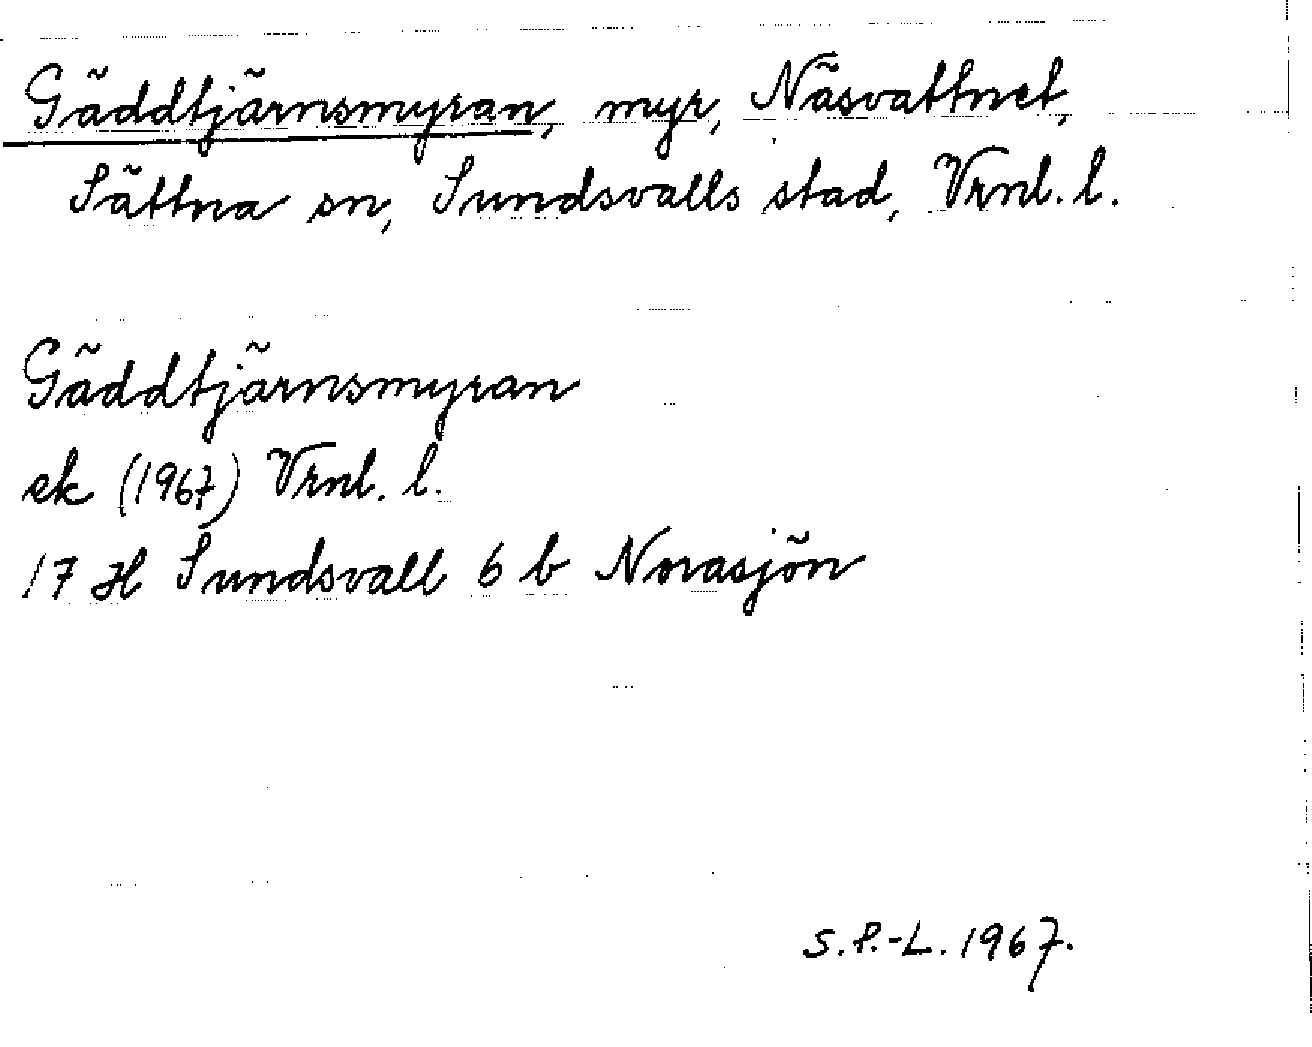 Gäddtjärnsmyran, myr, Näsvattnet,
Sättna sn, Sundsvalls stad, Vrnl. l.
Gäddtjärnsmyran
ek (1967) Vrnl. l.
17 H Sundsvall 6 b Norasjön
S.P.-L. 1967.